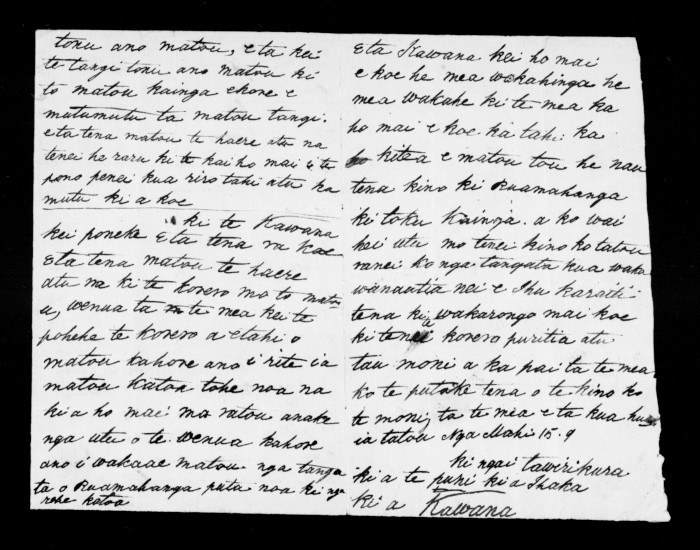 tonu ano matou, e ta kei
te tangi tonu ano matou ki
to matou kainga ekore e
mutumutu ta matou tangi.
eta tena matou te haere atu na
tenei he raru ki te kai ho mai i te
pono penei kua riro tahi atu ka
mutu ki a koe
ki te Kawana
kei poneke Eta tena ra koe
Eta tena matou te haere
atu na ki te korero mo to matou
wenua ta te mea kei te
pohehe te korero a etahi o
matou kahore ano i rite ia
matou katoa tohe noa na
kia ho mai ma ratou anake
nga utu o te wenua kahore
ano i wakaae matou nga tanga
ta o Ruamahanga puta noa ki nga
rohe katoa
Eta Kawana kei ho mai
e koe he mea wakahinga he
mea wakahe ki te mea ka
ho mai e koe ka tahi: ka
kitea e matou tou he nau
tena kino ki Ruamahanga
ki toku Kainga. a ko wai
hei utu mo tenei kino ko tatou
ranei ko nga tangata kua waka
wanautia nei e Ihu karaiti
tena kia wakarongo mai koe
ki tenei korero puritia atu
tau moni a ka pai ta te mea.
ko te putake tena o te kino ko
te moni, ta te mea e ta kua
ia tatou Nga Mahi 15. 9
ki ngai tawirikura
ki a te puni ki a Ihaka
ki a Kawana